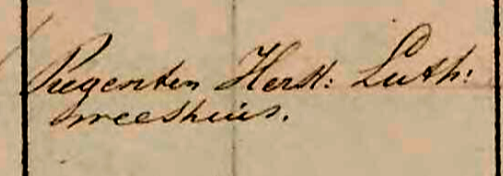 Regenten Herst: Luth:
weeshuis.